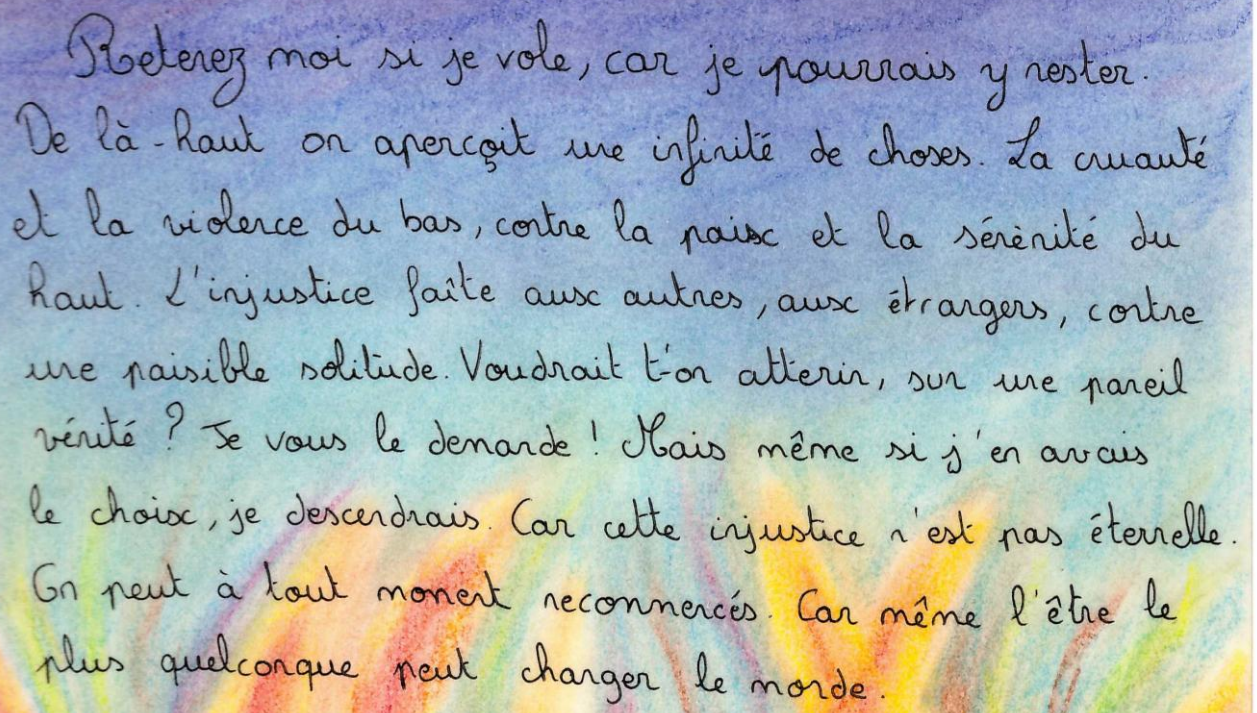 Retenez moi si je vole, car je pourrais y rester.
De là-haut on aperçoit une infinité de choses. La cruauté
et la violence du bas, contre la paix et la sérénité du
haut. L'injustice faîte aux autres, aux étrangers, contre
une paisible solitude. Voudrait t'on atterir, sur une pareil
vérité ? Je vous le demande ! Mais même si j'en avais
le choix, je descendrais. Car cette injustice n'est pas éternelle.
On peut à tout moment recommercés. Car même l'être le
plus quelconque peut changer le monde.